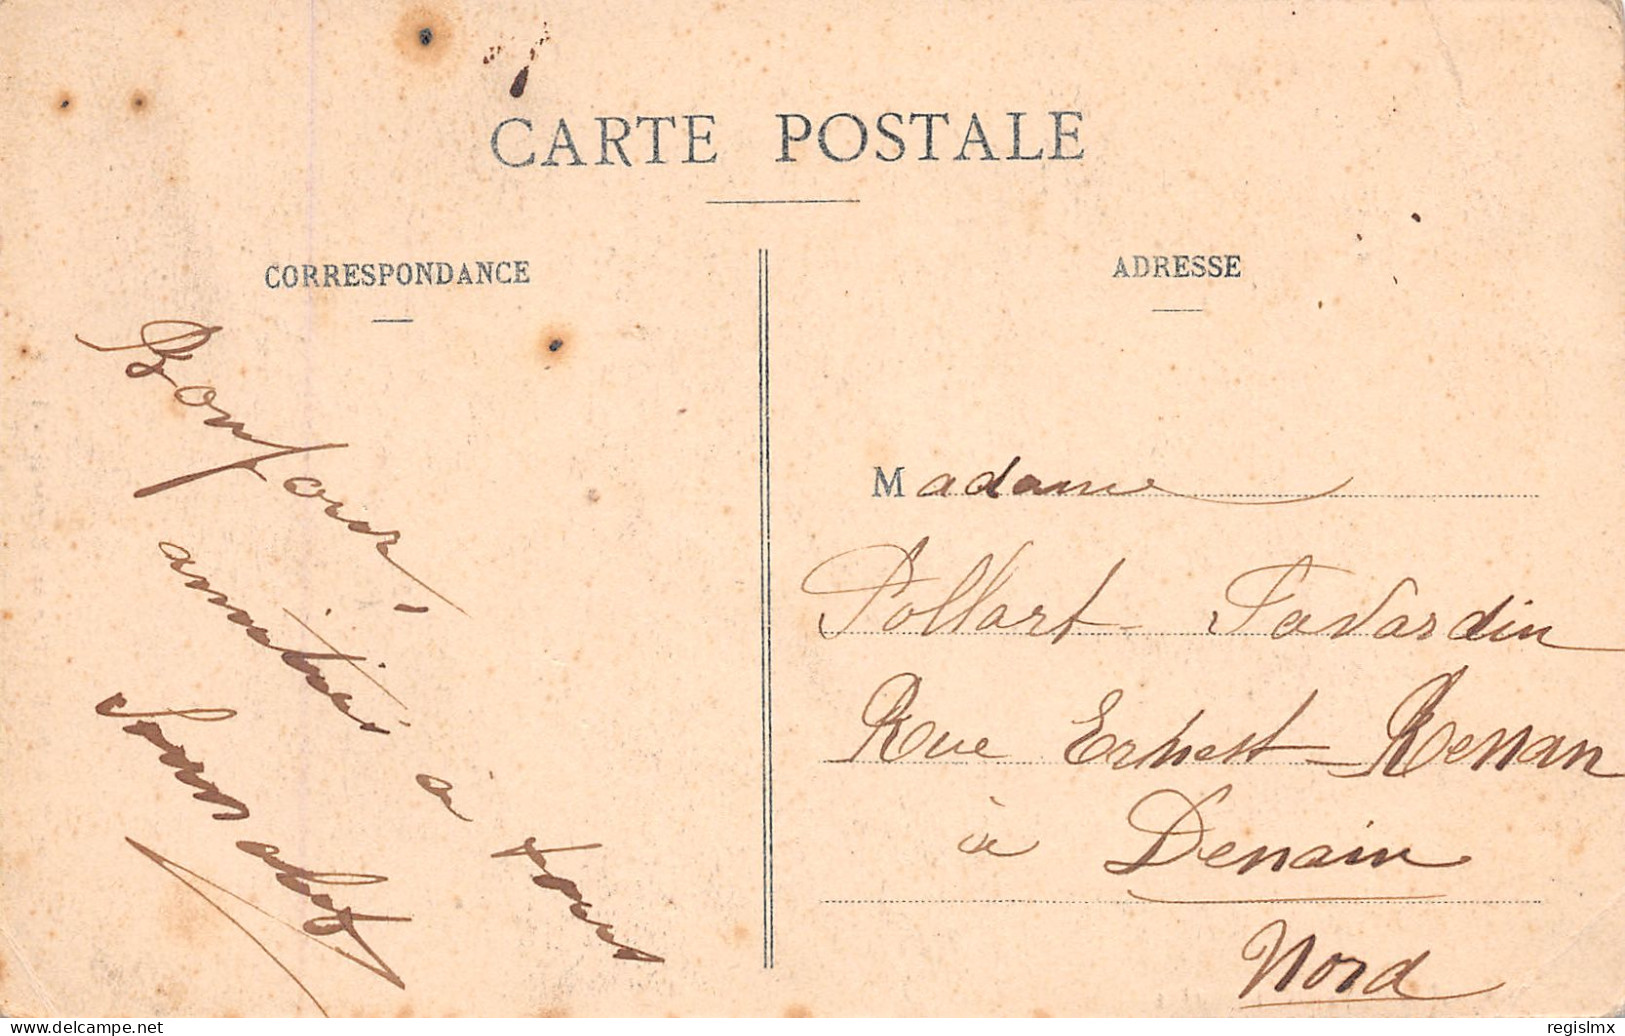 CARTE POSTALE
CORRESPONDANCE
Bonjour
amitiés à tous
ADRESSE
Madame
Pollart - Favardin
Rue Ernest Renan
à Denain
Nord
delcampe.net
regislmx